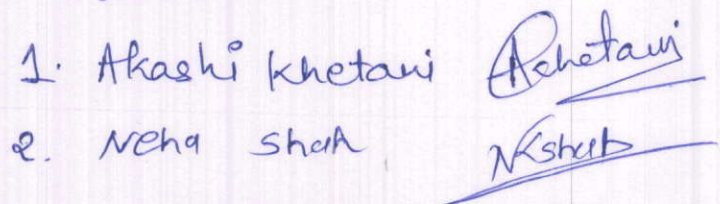 1. Akashi Khetani AKhetani
2. Neha Shah NKShah